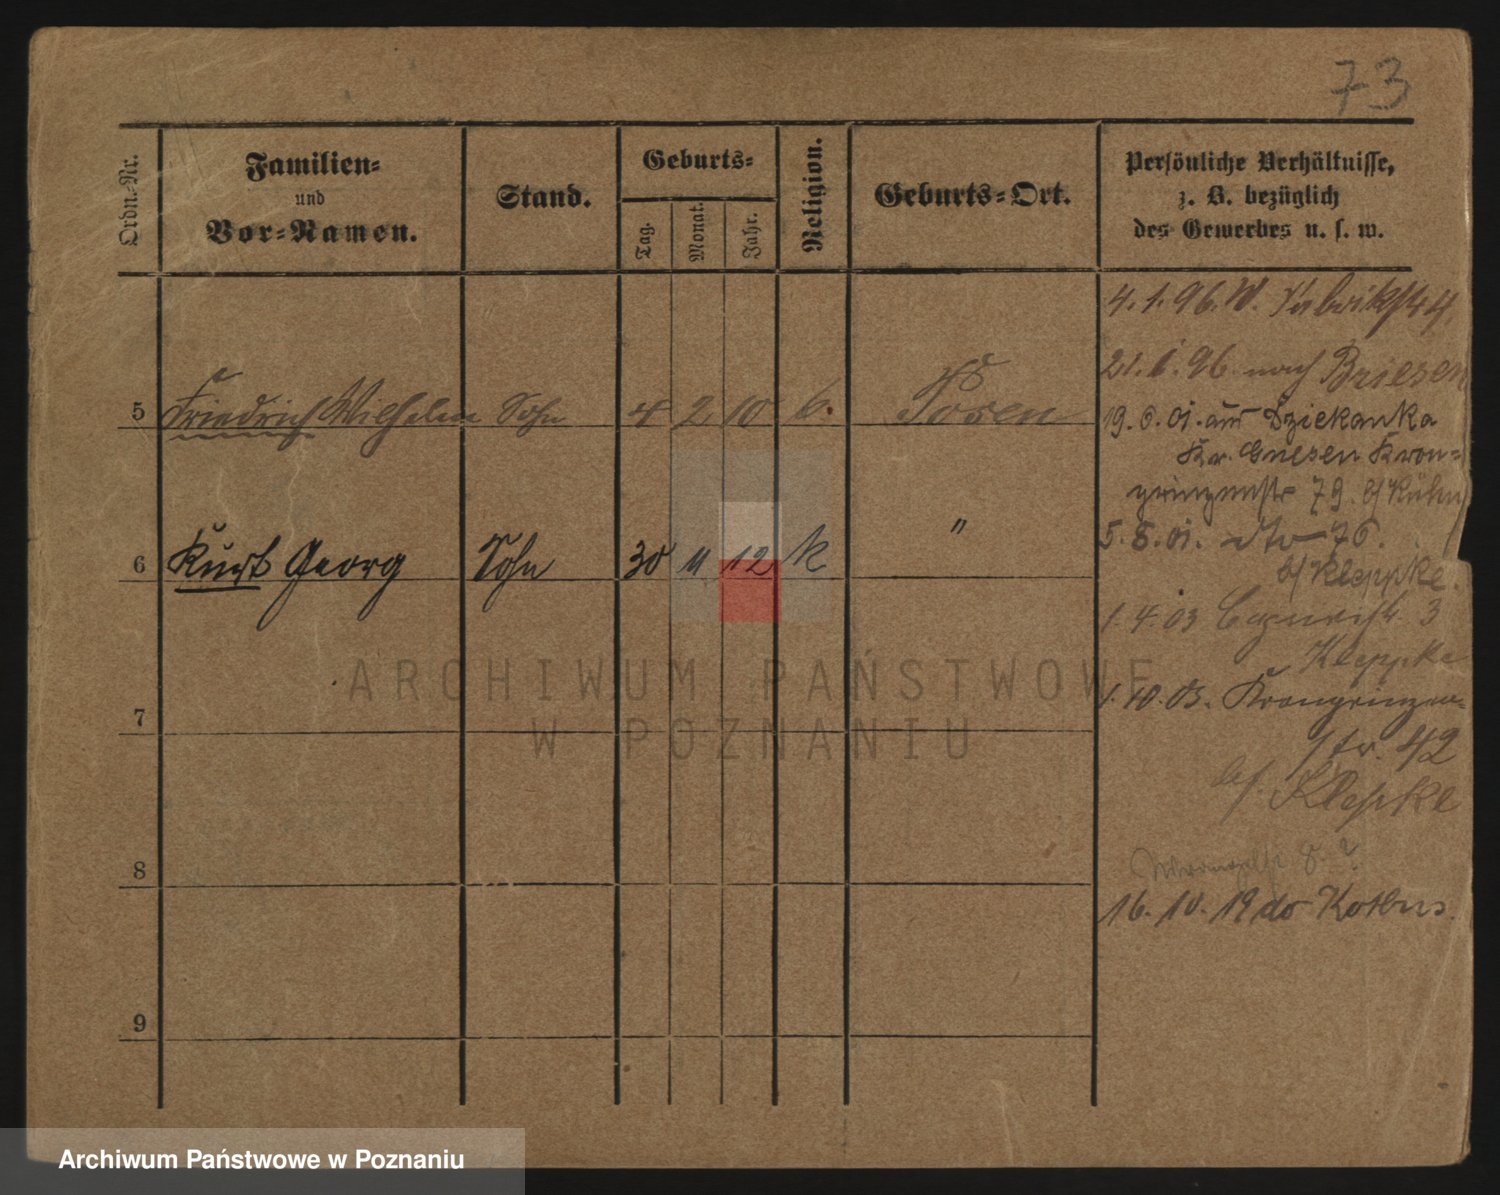 73
Ordn.-Nr.
Familien-
und
Vor-Namen.
Stand.
Geburts-
Tag.
Monat.
Jahr.
Religion.
Geburts-Ort.
Persönliche Verhältnisse,
z. B. bezüglich
des Gewerbes u. s. w.
4. 1. 96. W. Fabrikstr 4
21. 1. 96. nach Briesen
5 Friedrich Wilhelm Sohn 4 2 10 k. Posen
19. 6. 01. aus Dziekanka
Kr. Gnesen Kron-
prinzenstr 79. b/ Kühn
6 Kurt Georg Sohn 30 11 12 k "
5. 8. 01. dto 76.
b/ Kleppke.
1. 4. 03 3
Kleppke
1. 10. 03. Kronprinzen-
str. 42
bei Klepke
7
8
8. ?
16. 10. 19 do Kotbus.
9
ARCHIWUM PAŃSTWOWE
W POZNANIU
Archiwum Państwowe w Poznaniu